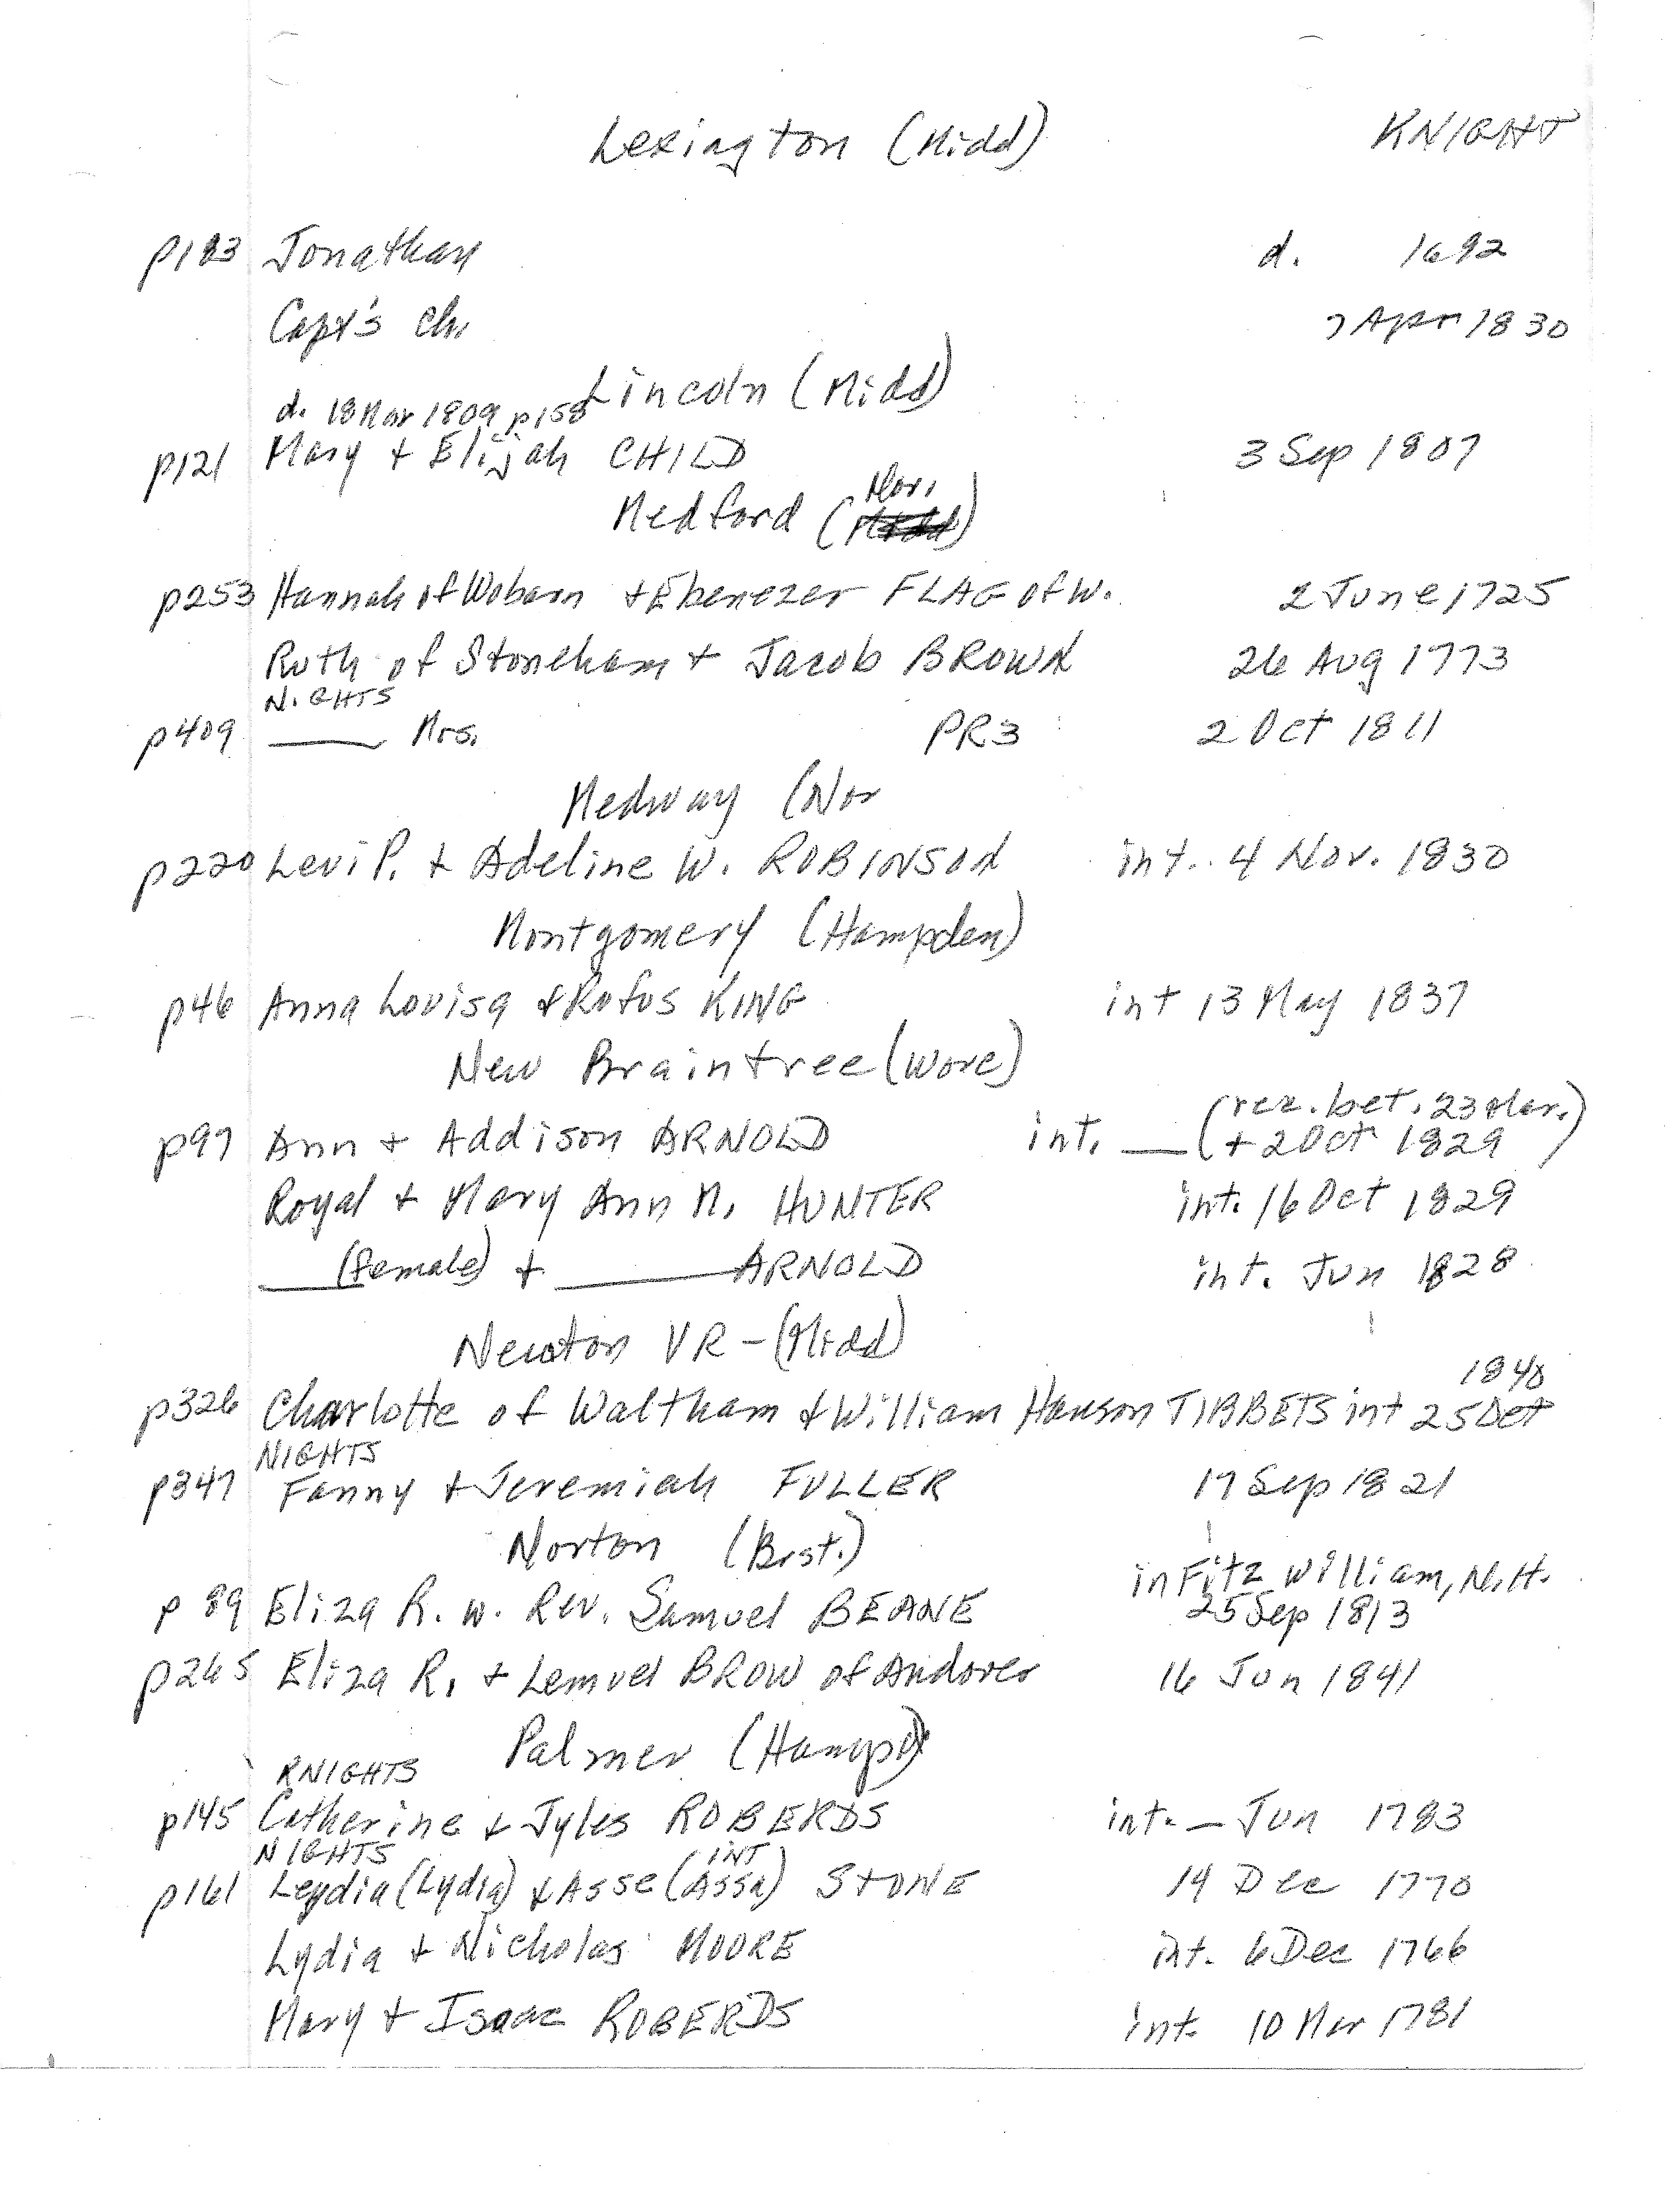 Lexington (Midd) KNIGHT
p183 Jonathan d. 1692
Capt's ch. 7 Apr 1830
Lincoln (Midd)
d. 18 Mar 1809 p158
p121 Mary + Elijah CHILD 3 Sep 1807
Nor.
Medford (Midd)
p253 Hannah of Woburn + Ebenezer FLAG of W. 2 June 1725
Ruth of Stoneham + Jacob BROWN 26 Aug 1773
NIGHTS
p409 ___ Mrs. PR3 2 Oct 1811
Medway (Nor
p220 Levi P. + Adeline W. ROBINSON int. 4 Nov. 1830
Montgomery (Hampden)
p46 Anna Lovisa + Rufus KING int 13 May 1837
New Braintree (Worc)
p97 Ann + Addison ARNOLD int. __ (rec. bet. 23 Mar. + 2 Oct 1829)
Royal + Mary Ann M. HUNTER int. 16 Oct 1829
___ (female) + ___ ARNOLD int. Jun 1828
Newton VR - (Midd)
p326 Charlotte of Waltham + William Hanson TIBBETS int 25 Oct 1840
NIGHTS
p347 Fanny + Jeremiah FULLER 17 Sep 1821
Norton (Brst.)
p 89 Eliza R. w. Rev. Samuel BEANE in Fitz william, N.H. 25 Sep 1813
p265 Eliza R. + Lemuel BROW of Andover 16 Jun 1841
Palmer (Hamp)
KNIGHTS
p145 Catherine + Jyles ROBERDS int. — Jun 1783
NIGHTS INT
p161 Leydia (Lydia) + Asse (Assa) STONE 14 Dec 1770
Lydia + Nicholas MOORE int. 6 Dec 1766
Mary + Isaac ROBERDS int. 10 Mar 1781